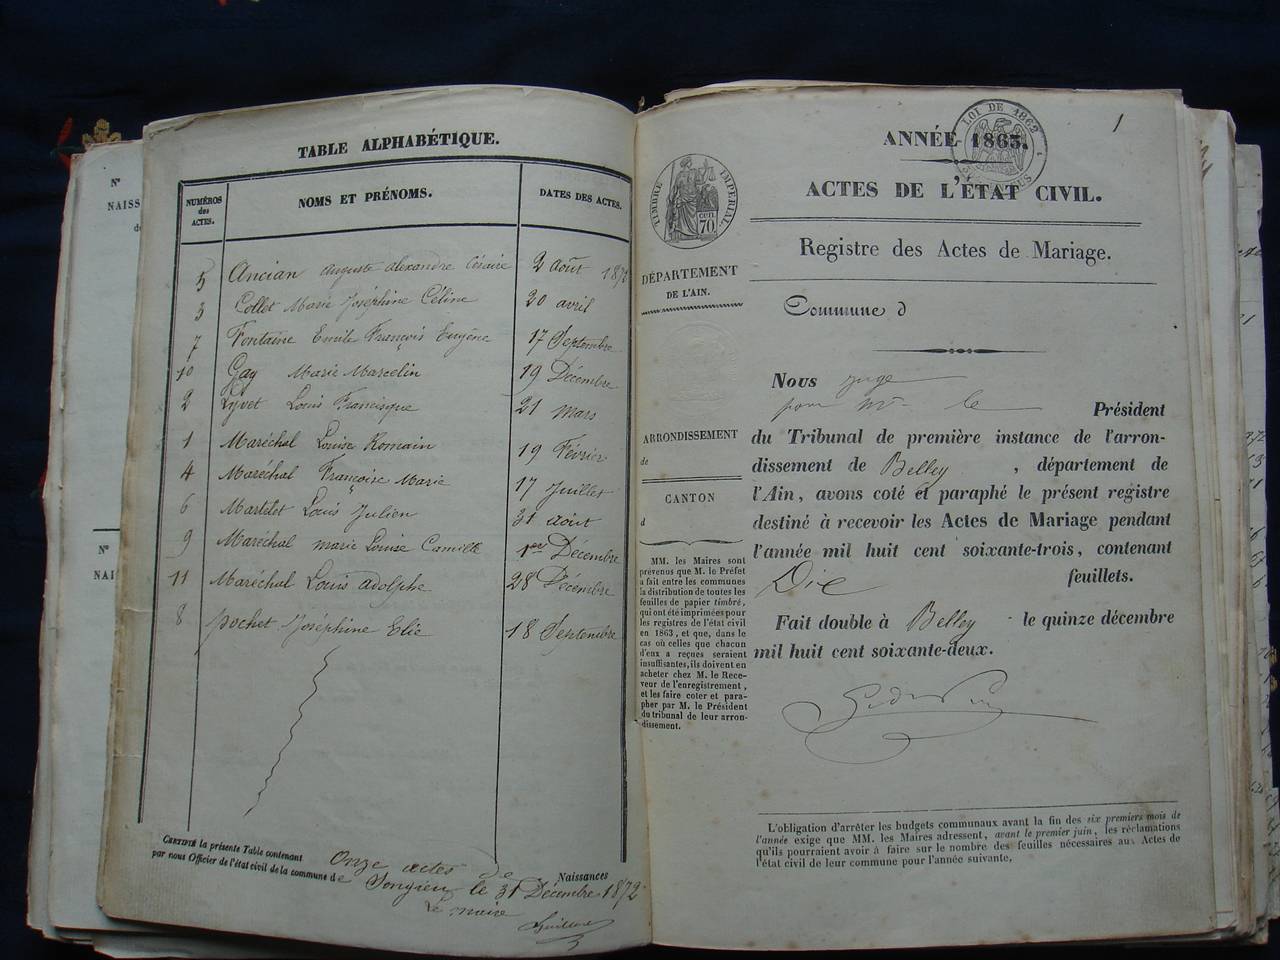 N°
NAISS
N°
NAI
TABLE ALPHABÉTIQUE.
NUMÉROS des ACTES. NOMS ET PRÉNOMS. DATES DES ACTES.
5 Ancian auguste alexandre Césaire 2 août 1872
3 Collet Marie Joséphine Céline 20 avril
7 Fontaine Emile François Eugène 17 Septembre
10 Gay Marie Marcelin 19 Décembre
2 Lyvet Louis Francisque 21 mars
1 Maréchal Louise Romain 19 Février
4 Maréchal Françoise Marie 17 Juillet
6 Martelet Louis Julien 31 août
9 Maréchal marie Louise Camille 1er Décembre
11 Maréchal Louis adolphe 28 Décembre
8 pochet Joséphine Elie 18 Septembre
CERTIFIÉ la présente Table contenant Onze actes de Naissances
par nous Officier de l'état civil de la commune de Songieu le 31 Décembre 1872
Le maire
1
ANNÉE 1863.
LOI DE 1862
ACTES DE L'ÉTAT CIVIL.
Registre des Actes de Mariage.
TIMBRE IMPÉRIAL.
CEN. 70
DÉPARTEMENT
DE L'AIN.
Commune d
ARRONDISSEMENT
de
CANTON
d
MM. les Maires sont
prévenus que M. le Préfet
a fait entre les communes
la distribution de toutes les
feuilles de papier timbré,
qui ont été imprimées pour
les registres de l'état civil
en 1863, et que, dans le
cas où celles que chacun
d'eux a reçues seraient
insuffisantes, ils doivent en
acheter chez M. le Rece-
veur de l'enregistrement,
et les faire coter et para-
pher par M. le Président
du tribunal de leur arron-
dissement.
Nous juge
pour Mr le Président
du Tribunal de première instance de l'arron-
dissement de Belley , département de
l'Ain, avons coté et paraphé le présent registre
destiné à recevoir les Actes de Mariage pendant
l'année mil huit cent soixante-trois, contenant
Dix feuillets.
Fait double à Belley le quinze décembre
mil huit cent soixante-deux.
L'obligation d'arrêter les budgets communaux avant la fin des six premiers mois de
l'année exige que MM. les Maires adressent, avant le premier juin, les réclamations
qu'ils pourraient avoir à faire sur le nombre des feuilles nécessaires aux Actes de
l'état civil de leur commune pour l'année suivante.